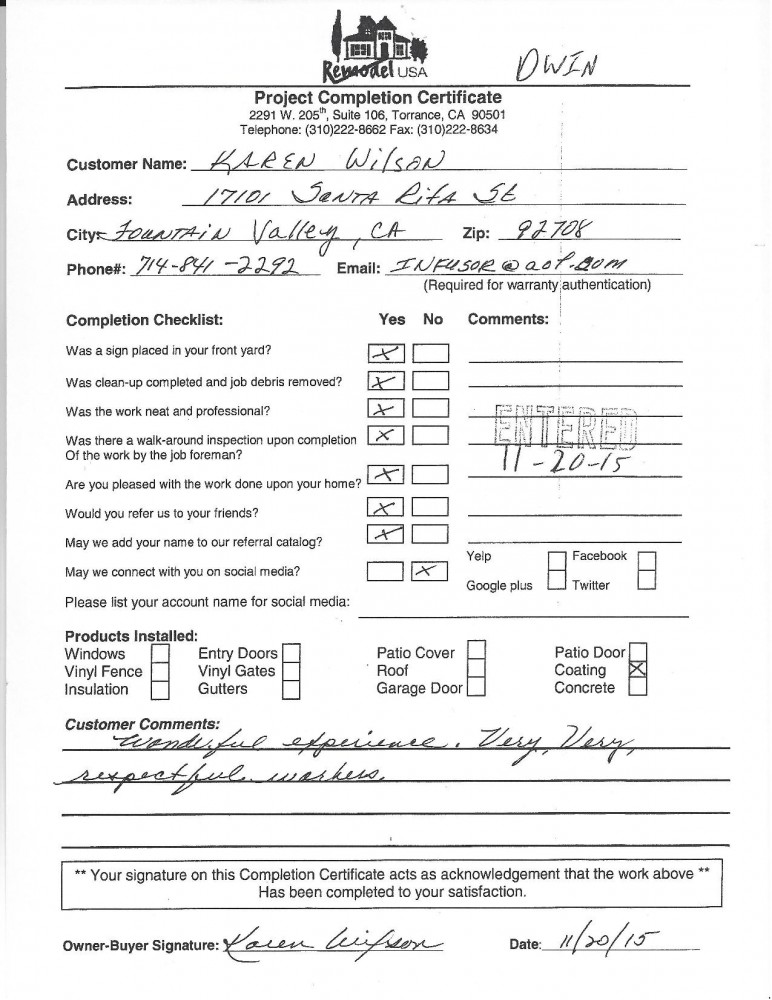 Remodel USA
DWIN
Project Completion Certificate
2291 W. 205th, Suite 106, Torrance, CA 90501
Telephone: (310)222-8662 Fax: (310)222-8634
Customer Name: KAREN WilsON
Address: 17101 SANTA RitA St
City: FOUNTAIN Valley, CA Zip: 92708
Phone#: 714-841-2292 Email: INFUSOR@aol.com
(Required for warranty authentication)
Completion Checklist: Yes No Comments:
Was a sign placed in your front yard? X
Was clean-up completed and job debris removed? X
Was the work neat and professional? X
ENTERED
Was there a walk-around inspection upon completion X
Of the work by the job foreman?
11-20-15
Are you pleased with the work done upon your home? X
Would you refer us to your friends? X
May we add your name to our referral catalog? X
Yelp Facebook
May we connect with you on social media? X
Google plus Twitter
Please list your account name for social media:
Products Installed:
Windows Entry Doors Patio Cover Patio Door
Vinyl Fence Vinyl Gates Roof Coating X
Insulation Gutters Garage Door Concrete
Customer Comments:
Wonderful experience. Very, Very,
respectful workers.
** Your signature on this Completion Certificate acts as acknowledgement that the work above **
Has been completed to your satisfaction.
Owner-Buyer Signature: Karen Wilson Date: 11/20/15